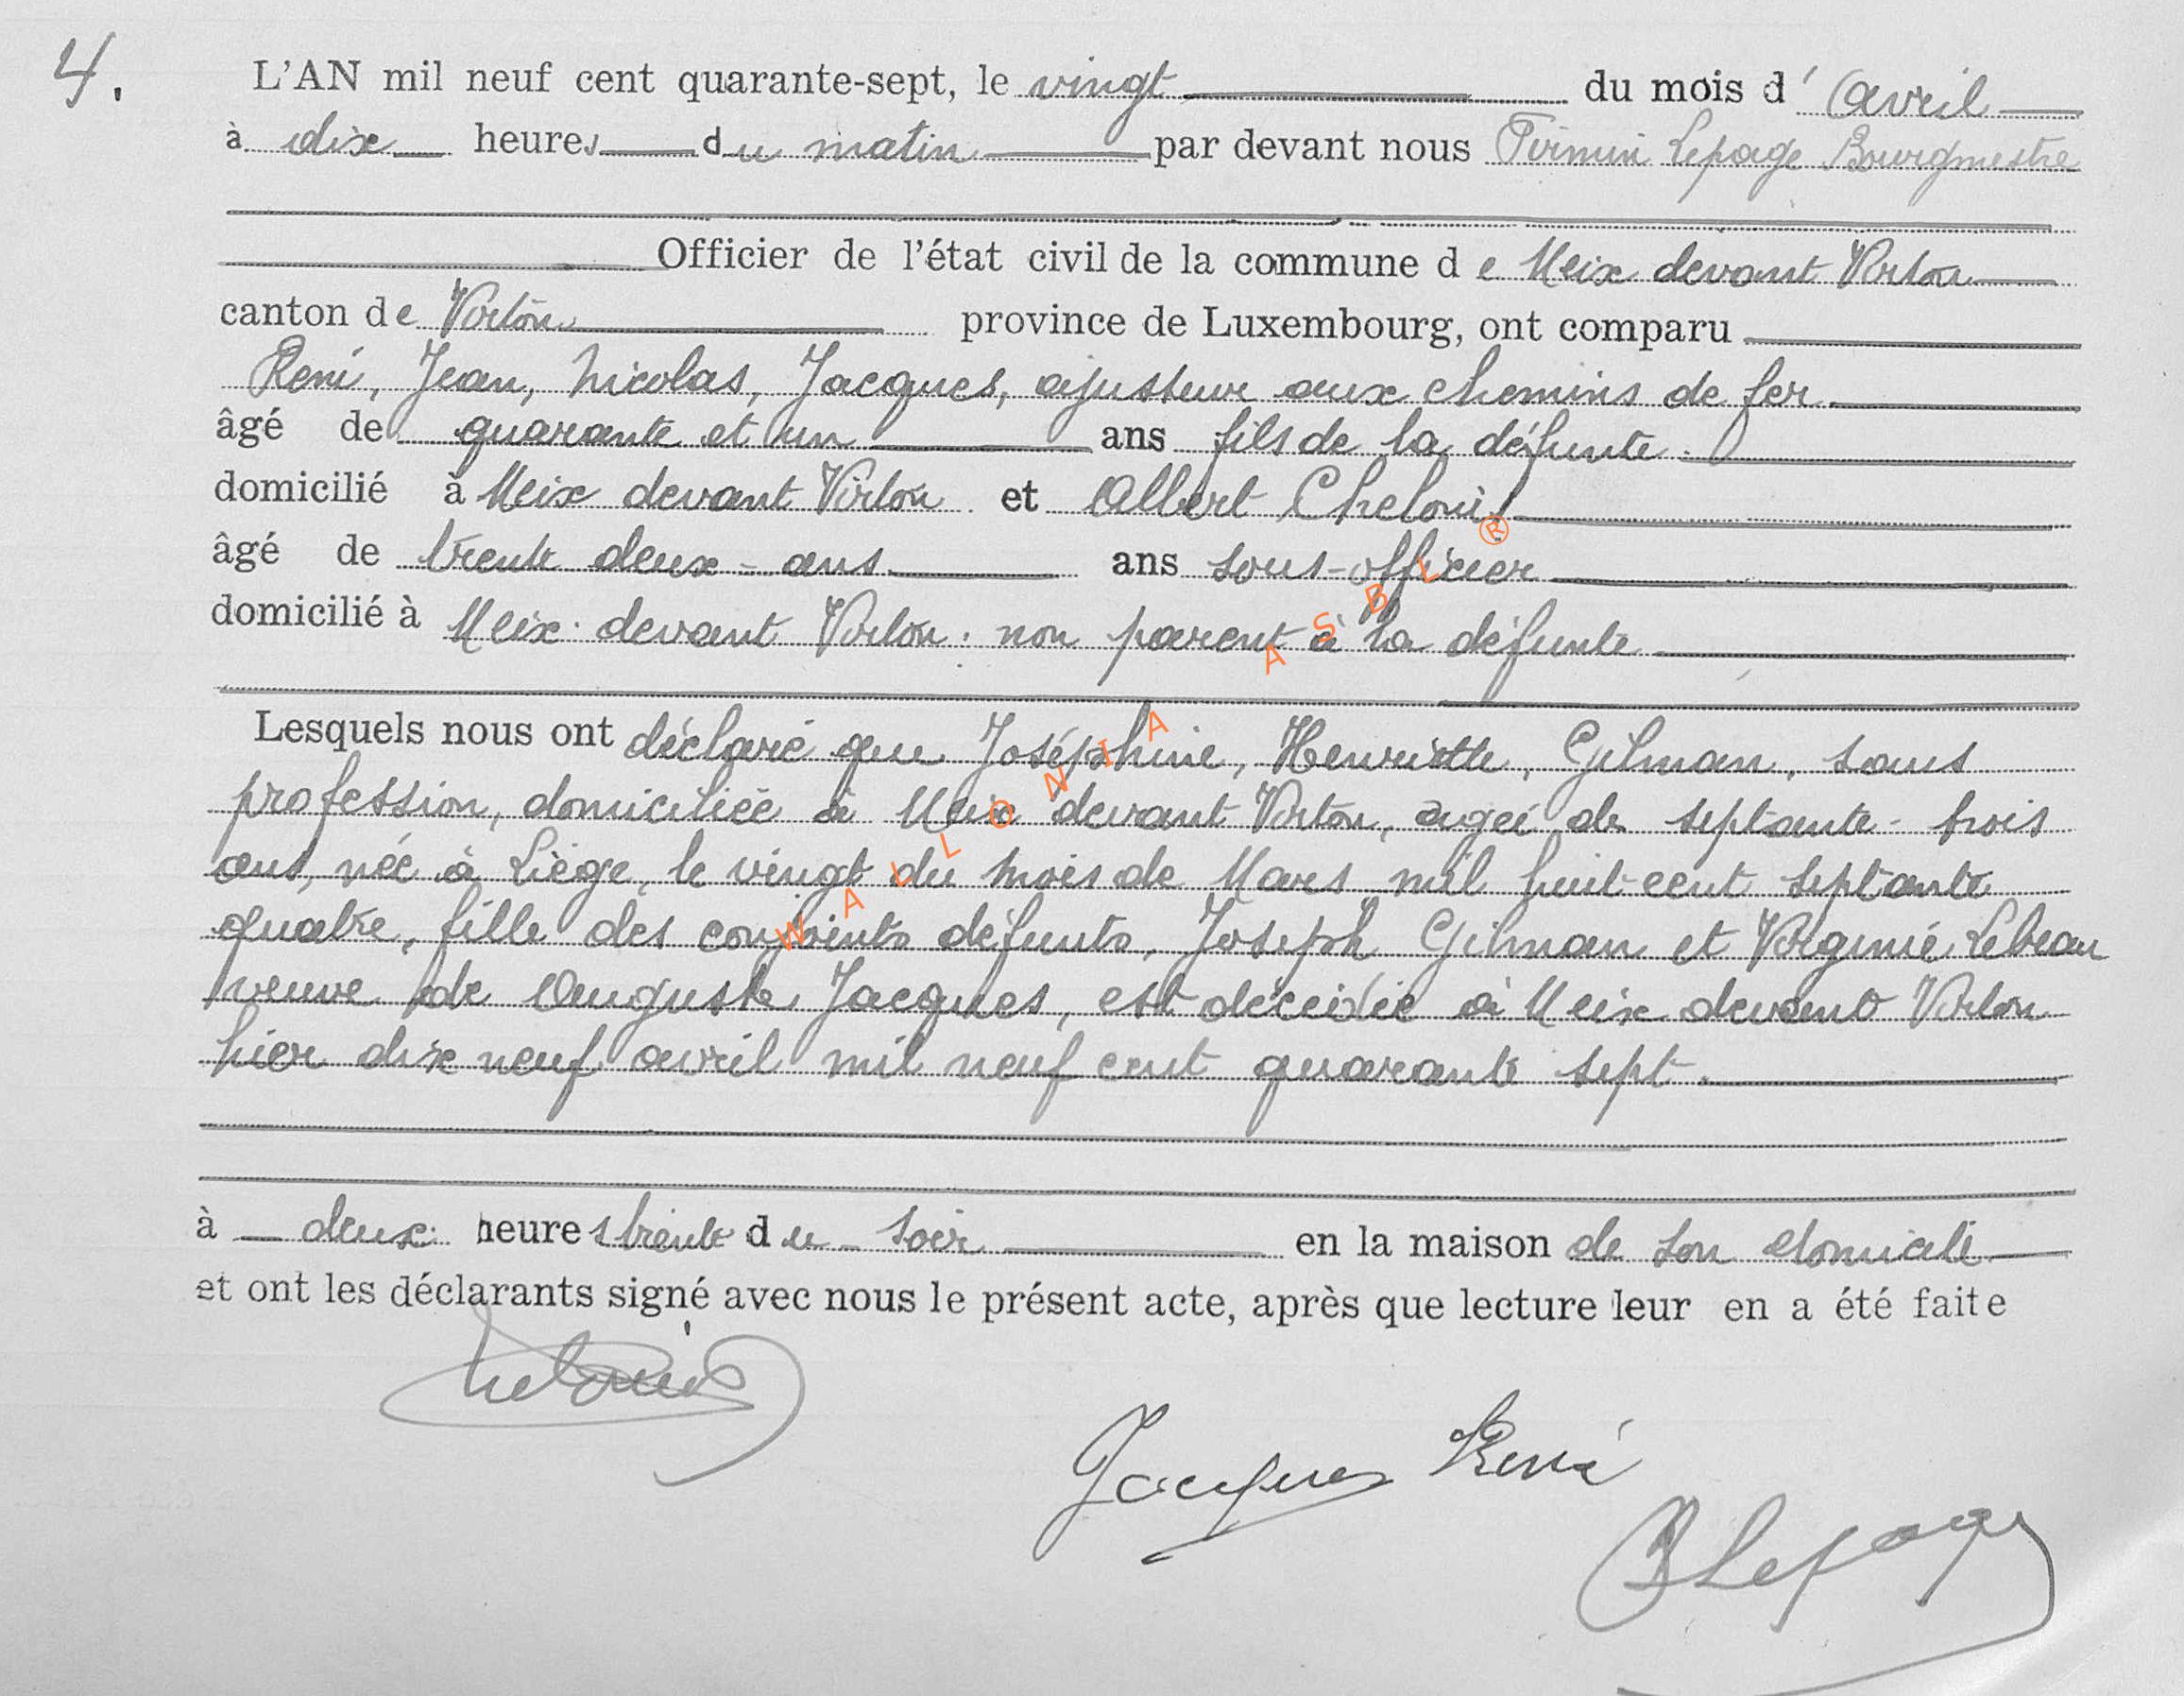 4.
L'AN mil neuf cent quarante-sept, le vingt du mois d'Avril
à dix heures du matin par devant nous Firmin Lepage Bourgmestre
Officier de l'état civil de la commune de Meix devant Virton
canton de Virton province de Luxembourg, ont comparu
René, Jean, Nicolas, Jacques, ajusteur aux chemins de fer.
âgé de quarante et un ans fils de la défunte.
domicilié à Meix devant Virton et Albert Cheloui
âgé de trente deux - ans ans sous-officier
domicilié à Meix devant Virton. non parent à la défunte
Lesquels nous ont déclaré que Joséphine, Henriette, Gilman, sans
profession, domiciliée à Meix devant Virton, agée de septante-trois
ans, née à Liège, le vingt du mois de Mars mil huit cent septante
quatre, fille des conjoints défunts, Joseph Gilman et Virginie Lebeau
veuve de Auguste Jacques, est décédée à Meix devant Virton
hier dix neuf avril mil neuf cent quarante sept.
à deux heures trente du soir en la maison de son domicile
et ont les déclarants signé avec nous le présent acte, après que lecture leur en a été faite
Jacques René
Lepage
WALLONIA ASBL ®